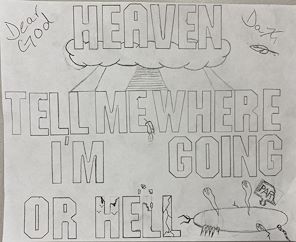 Dear God
HEAVEN
TELL ME WHERE
I'M GOING
OR HELL